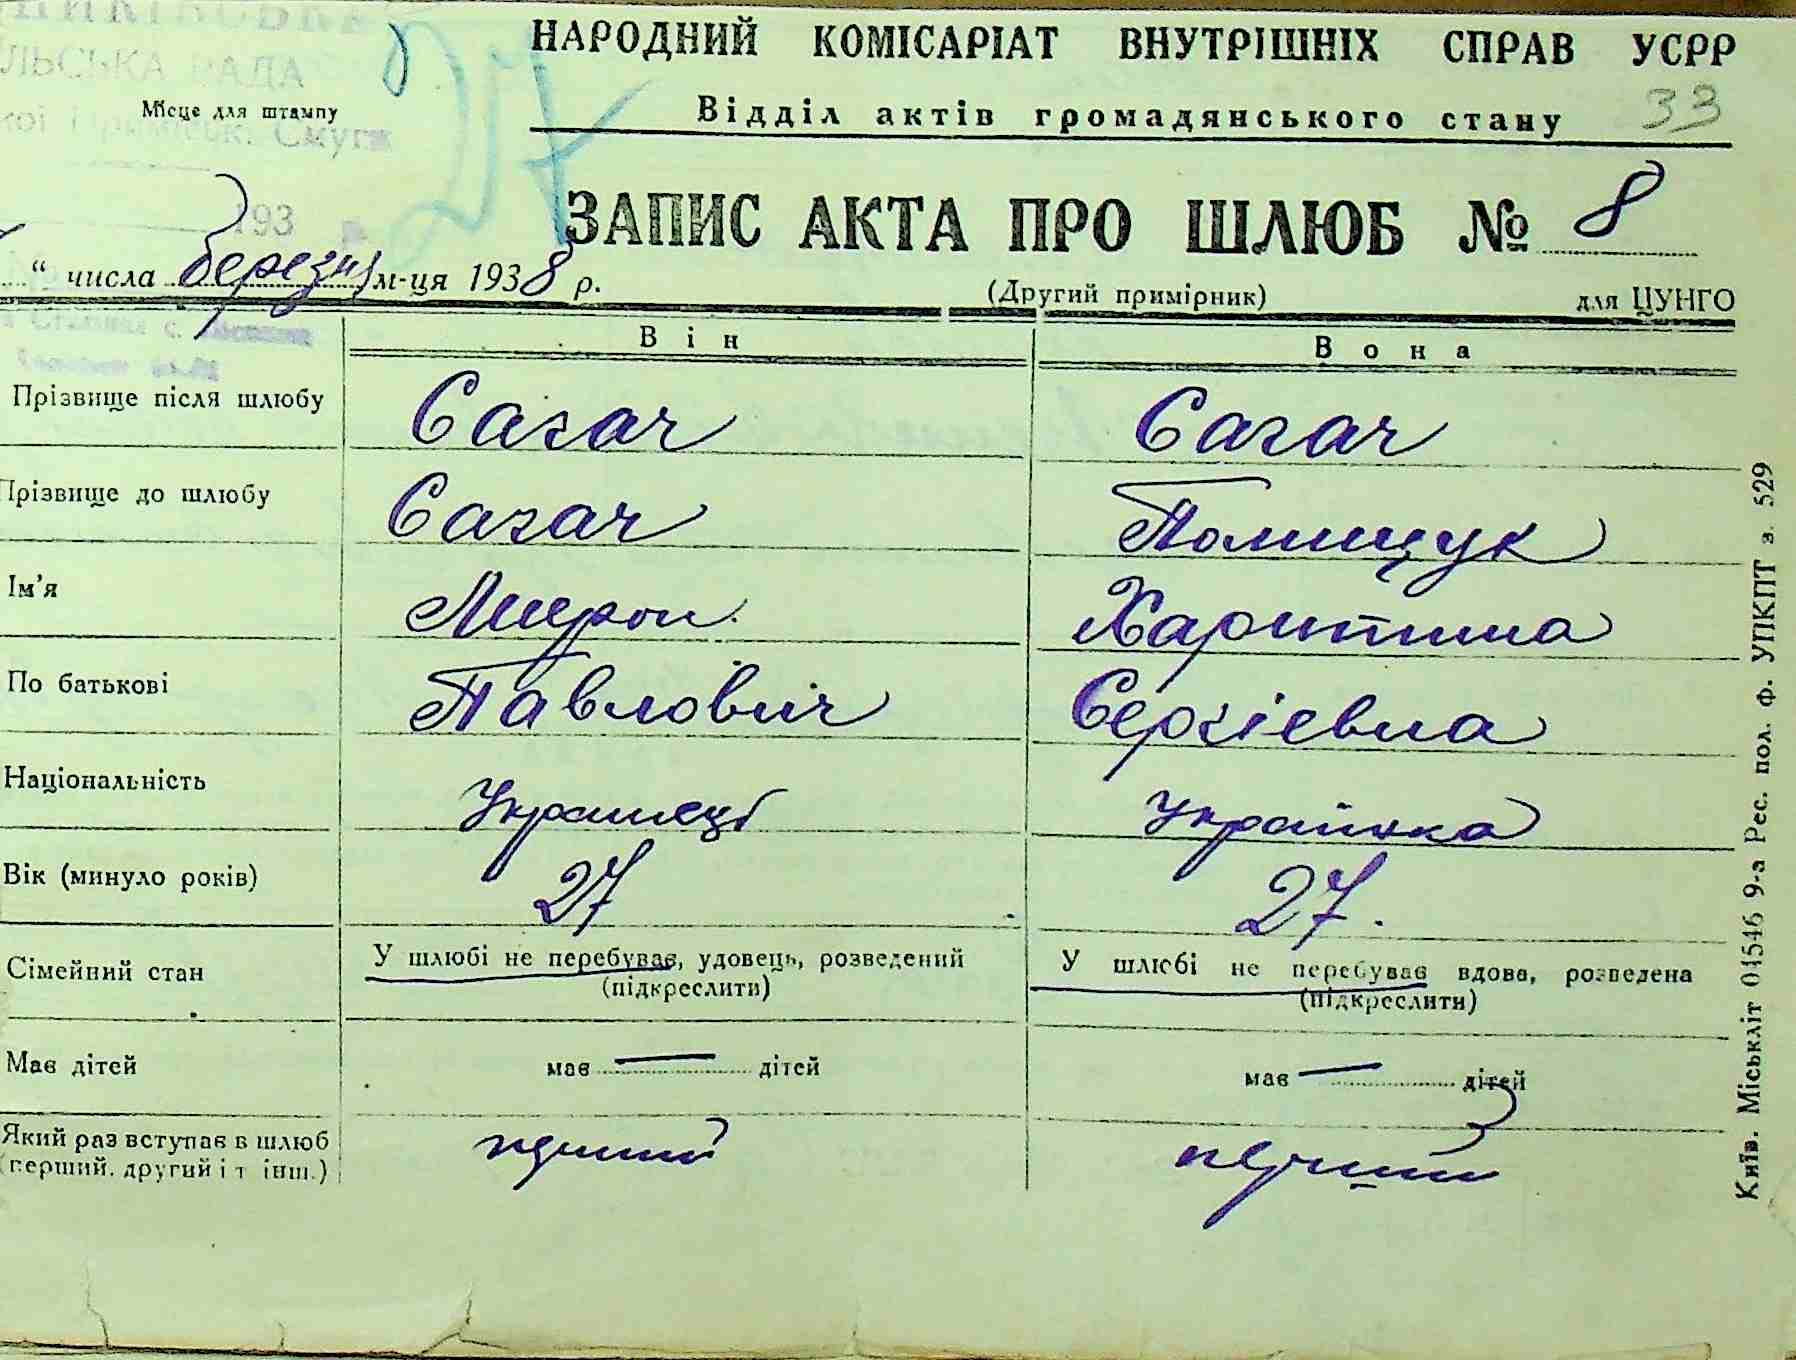 ЛЬСЬКА РАДА
Місце для штампу
Смуги
193
27
НАРОДНИЙ КОМІСАРІАТ ВНУТРІШНІХ СПРАВ УСРР
Відділ актів громадянського стану
33
ЗАПИС АКТА ПРО ШЛЮБ № 8
“ числа березня м-ця 1938 р.
(Другий примірник)
для ЦУНГО
Він
Вона
Прізвище після шлюбу Сагач Сагач
Прізвище до шлюбу Сагач Полищук
Ім'я Мирон Харитина
По батькові Павлович Сергієвна
Національність Украинець Українка
Вік (минуло років) 27 27.
Сімейний стан У шлюбі не перебував, удовець, розведений У шлюбі не перебував вдова, розведена
(підкреслити) (підкреслити)
Має дітей має — дітей має — дітей
Який раз вступає в шлюб перший перший
(перший, другий і т інш.)
Київ. Міськліт 01546 9-а Рес. пол. ф. УПКПТ з. 529